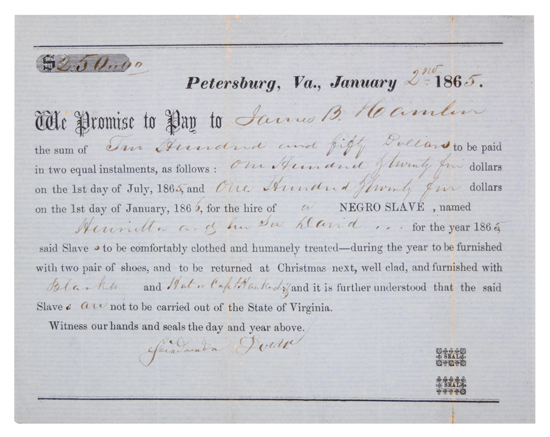 $250.00
Petersburg, Va., January 2nd 1865.
We Promise to Pay to James B. Hamlin
the sum of Two Hundred and fifty Dollars to be paid
in two equal instalments, as follows: One Hundred & twenty five dollars
on the 1st day of July, 1865, and One Hundred & twenty five dollars
on the 1st day of January, 1866, for the hire of a NEGRO SLAVE, named
Henrietta and her David for the year 1865
said Slave s to be comfortably clothed and humanely treated—during the year to be furnished
with two pair of shoes, and to be returned at Christmas next, well clad, and furnished with
Blanket and Hat or Cap and it is further understood that the said
Slave s are not to be carried out of the State of Virginia.
Witness our hands and seals the day and year above.
SEAL
SEAL